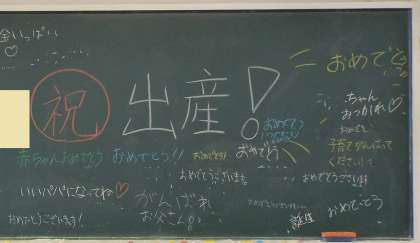 金いっぱい
おめでとう
祝 出産!
ちゃん
おつかれ♡
おめでとう
赤ちゃんおめでとう おめでとう!! おめでとう! おめでとう
子育てがんばって
ください
おめでとうございます
いいパパになってね♡
がんばれ
お父さん
おめでとうございます!
誕生
おめでとう